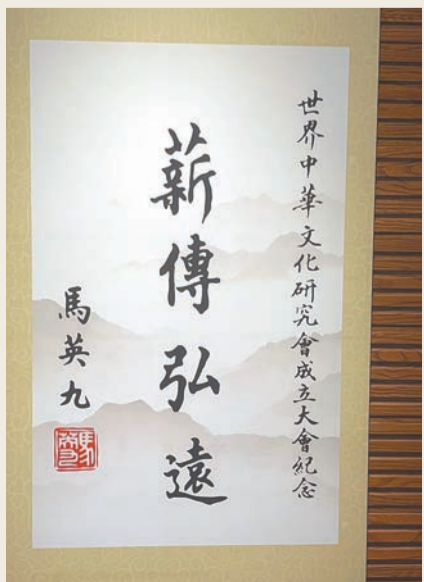 世界中華文化研究會成立大會紀念
薪傳弘遠
馬英九